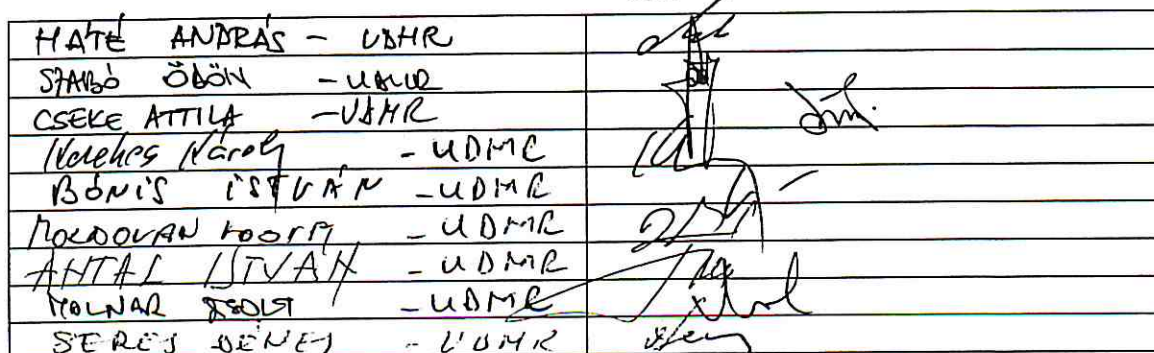 MÁTÉ ANDRÁS - UDMR
SZABÓ ÖDÖN - UDMR
CSEKE ATTILA - UDMR
Kerekes Károly - UDMR
BÓNIS ISTVÁN - UDMR
MOLDOVAN - UDMR
ANTAL ISTVÁN - UDMR
MOLNAR ZSOLT - UDMR
SERES DÉNES - UDMR